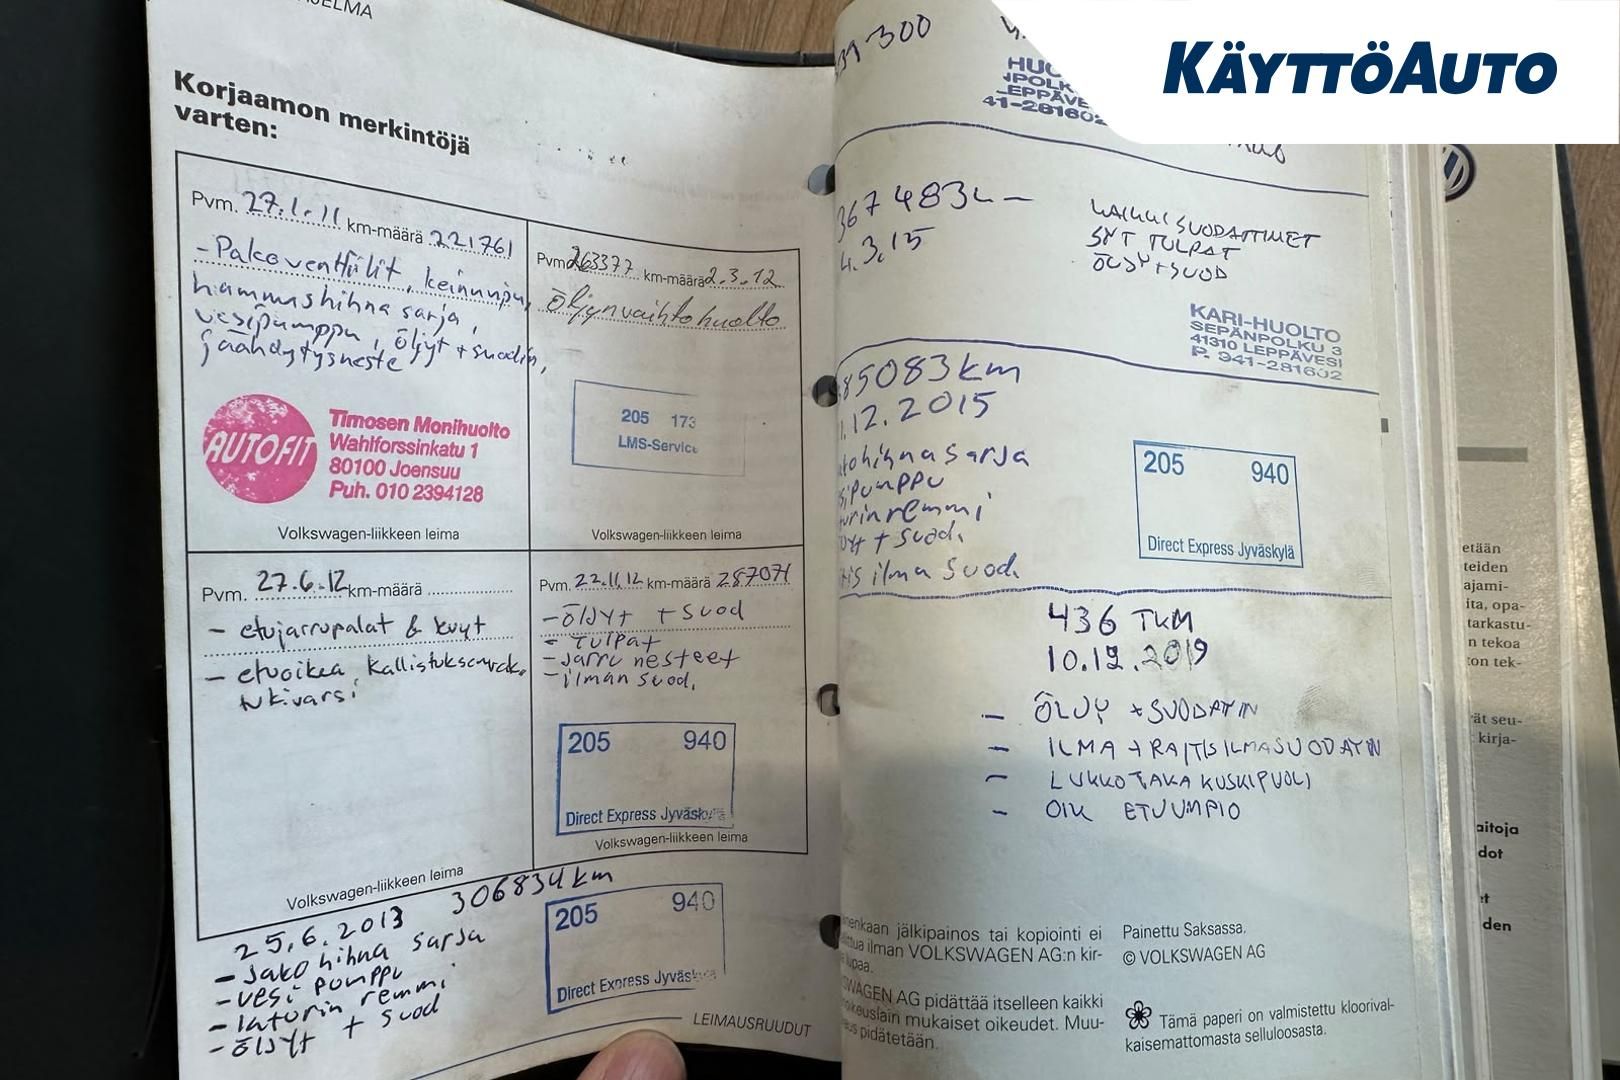 KÄYTTÖAUTO
Korjaamon merkintöjä
varten:
Pvm. 27.1.11 km-määrä 221761
- Pakoventtiilit, keinuvipu,
hammashihna sarja,
vesipumppu, öljyt + suodin,
jäähdytysneste
AUTOFIT
Timosen Monihuolto
Wahlforssinkatu 1
80100 Joensuu
Puh. 010 2394128
Volkswagen-liikkeen leima
Pvm. 263377 km-määrä 2.3.12
öljynvaihtohuolto
205 173
LMS-Service
Volkswagen-liikkeen leima
Pvm. 27.6.12 km-määrä
- etujarrupalat & levyt
- etuoikea
tukivarsi
Volkswagen-liikkeen leima
Pvm. 22.11.12 km-määrä 287071
- ÖLJYT + SUOD
- TULPAT
- JARRU NESTEET
- ILMAN SUOD.
205 940
Direct Express Jyväskylä
Volkswagen-liikkeen leima
25.6.2013 306834 km
- JAKO HIHNA SARJA
- VESI PUMPPU
- LATURIN REMMI
- ÖLJYT + SUOD
205 940
Direct Express
LEIMAUSRUUDUT
300
41-281602
367483
4.3.15
KAIKKI SUODATTIMET
SYT TULPAT
ÖLJY + SUOD
KARI-HUOLTO
SEPÄNPOLKU 3
41310 LEPPÄVESI
P. 941-281602
85083 km
12.2015
hihna sarja
PUMPPU
REMMI
+ SUOD.
ILMA SUOD.
205 940
Direct Express Jyväskylä
436 TKM
10.12.2019
- ÖLJY + SUODATIN
- ILMA + RAITISILMASUODATIN
- LUKKO TAKA KUSKIPUOLI
- OIK ETUUMPIO
jälkipainos tai kopiointi ei
ilman VOLKSWAGEN AG:n kir-
pidättää itselleen kaikki
mukaiset oikeudet. Muu-
pidätetään.
Painettu Saksassa.
© VOLKSWAGEN AG
Tämä paperi on valmistettu kloorival-
kaisemattomasta selluloosasta.